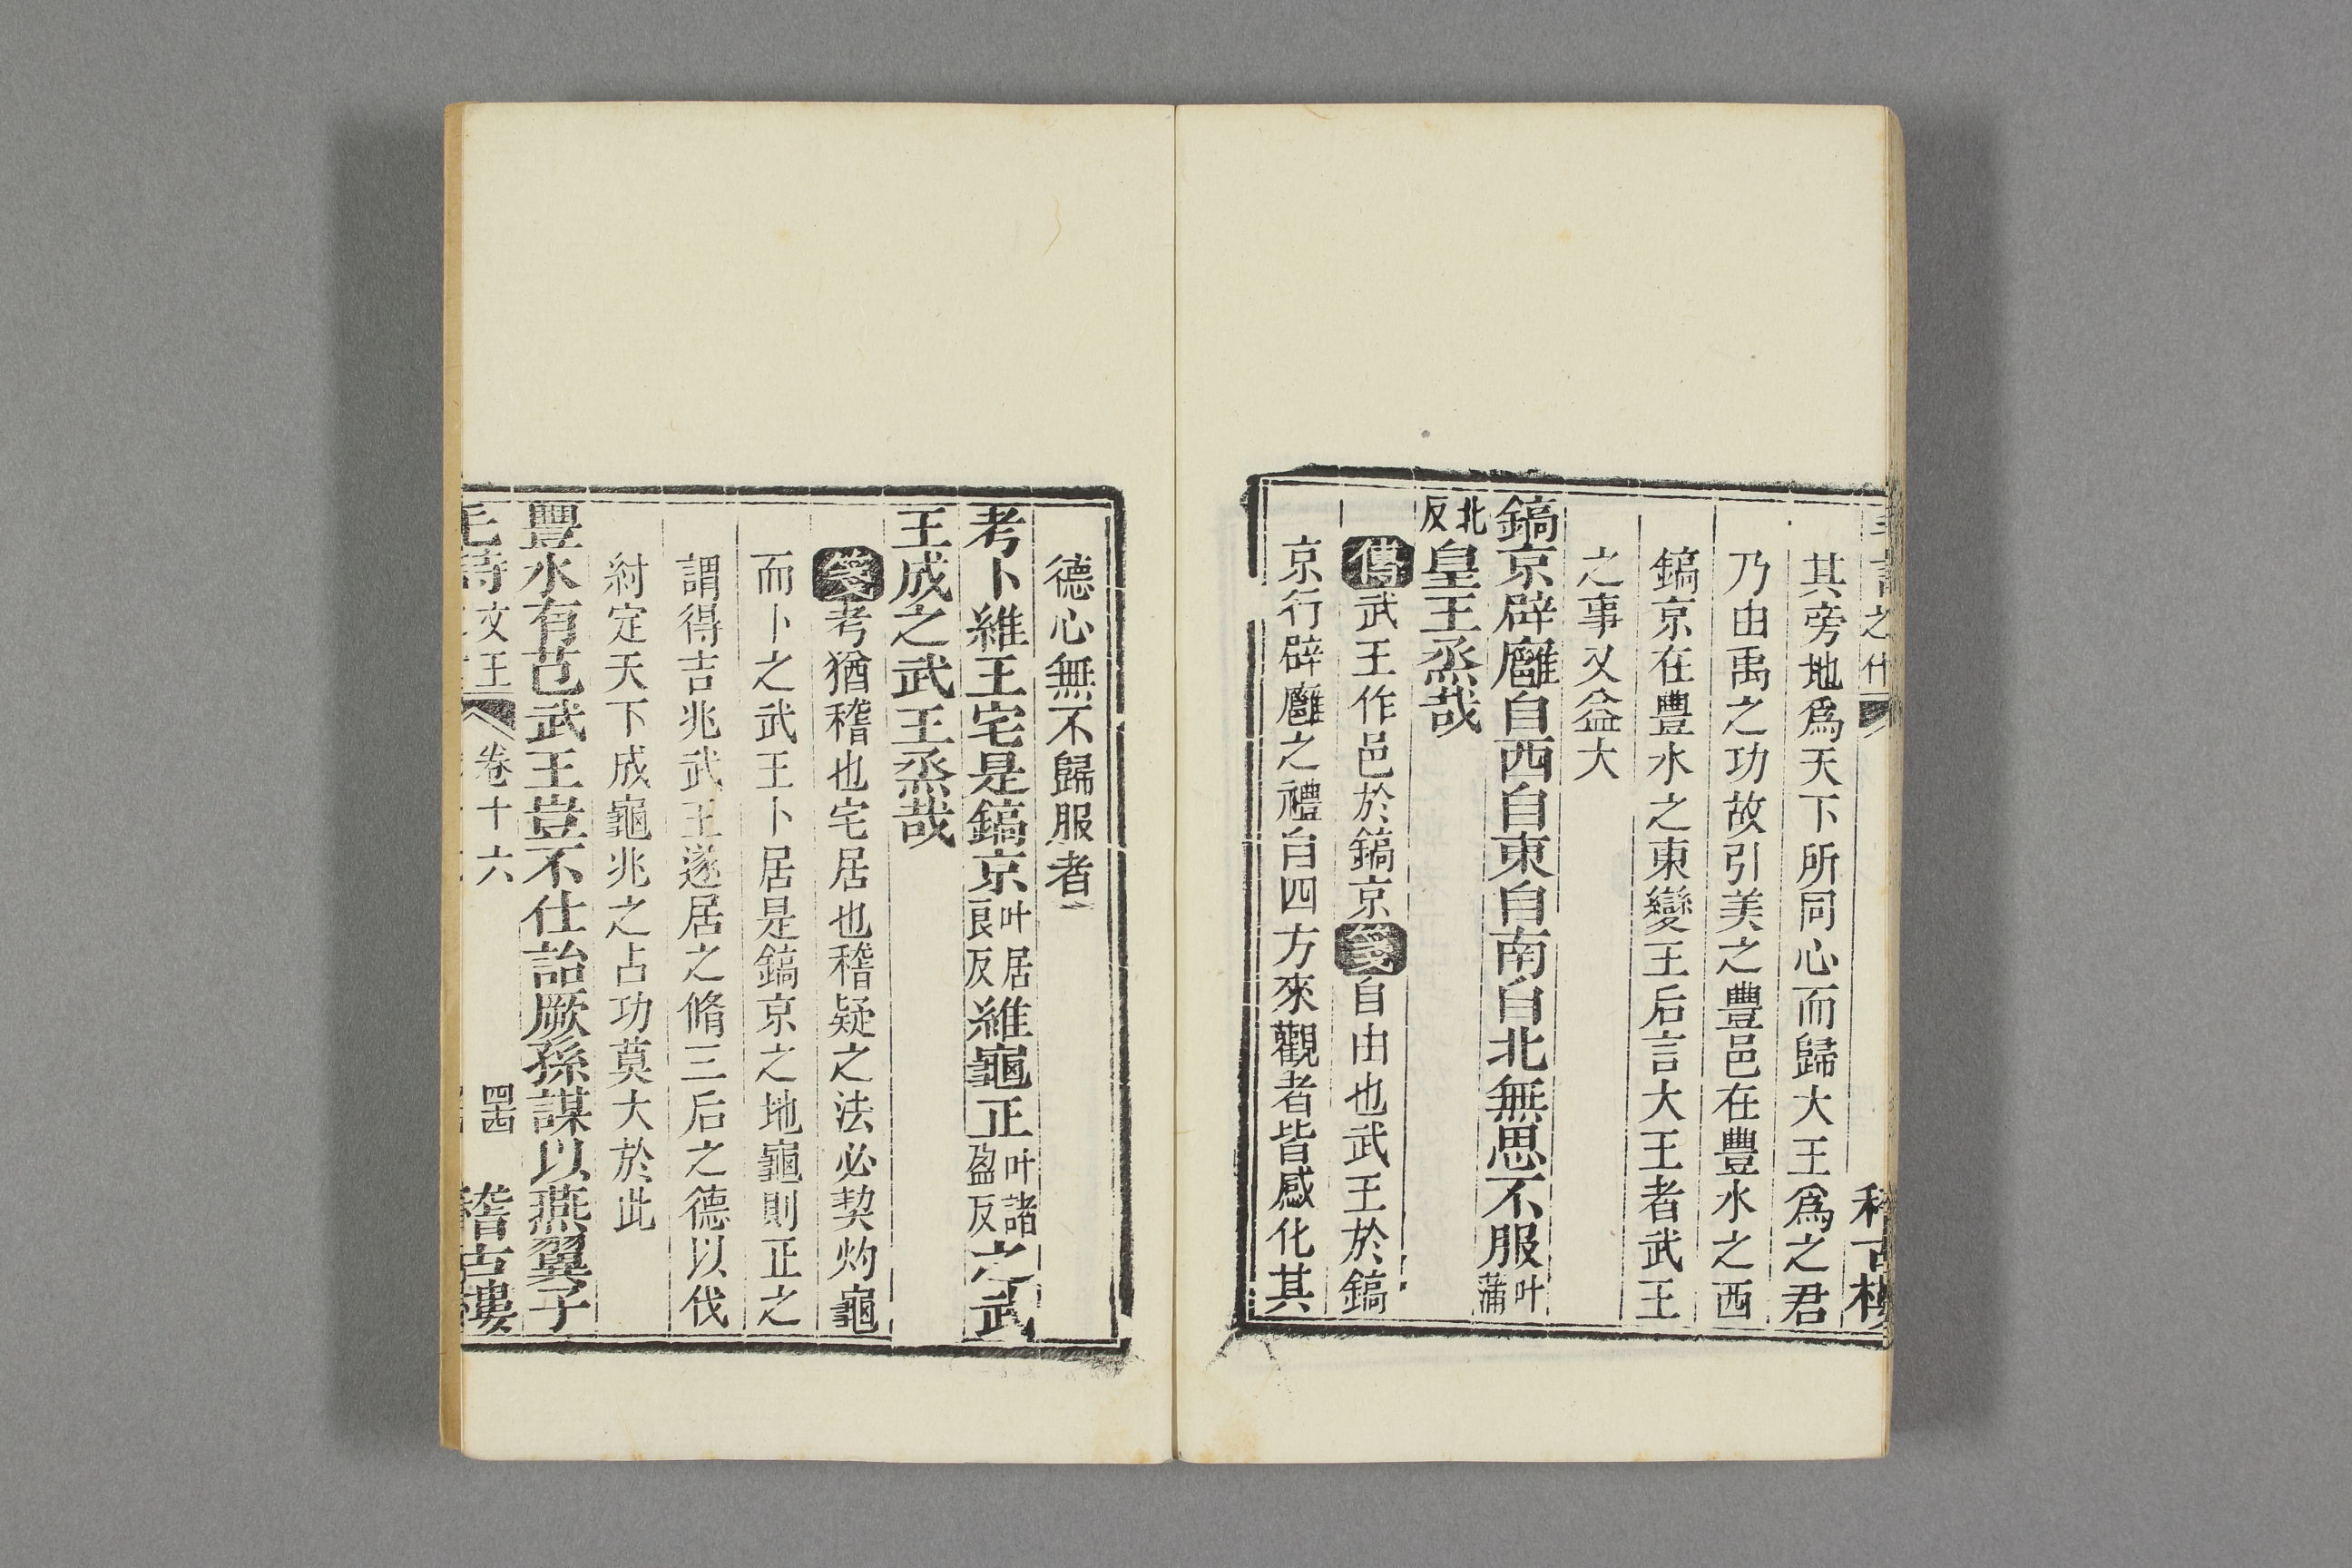 其旁地爲天下所同心而歸大王爲之君
乃由禹之功故引美之豐邑在豐水之西
鎬京在豐水之東變王后言大王者武王
之事又益大
鎬京辟廱自西自東自南自北無思不服叶蒲
北反皇王烝哉
傳武王作邑於鎬京箋自由也武王於鎬
京行辟廱之禮自四方來觀者皆感化其
德心無不歸服者
考卜維王宅是鎬京叶居良反維龜正叶諸盈反之武
王成之武王烝哉
箋考猶稽也宅居也稽疑之法必契灼龜
而卜之武王卜居是鎬京之地龜則正之
謂得吉兆武王遂居之脩三后之德以伐
紂定天下成龜兆之占功莫大於此
豐水有芑武王豈不仕詒厥孫謀以燕翼子
毛詩 文王 卷十六 四十四 稽古樓